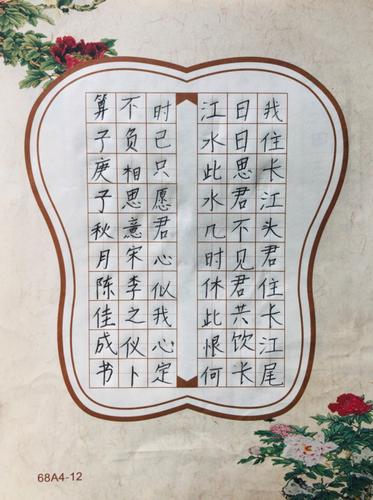 我住长江头君住长江尾
日日思君不见君共饮长
江水此水几时休此恨何
时已只愿君心似我心定
不负相思意宋李之仪卜
算子庚子秋月陈佳成书
68A4-12